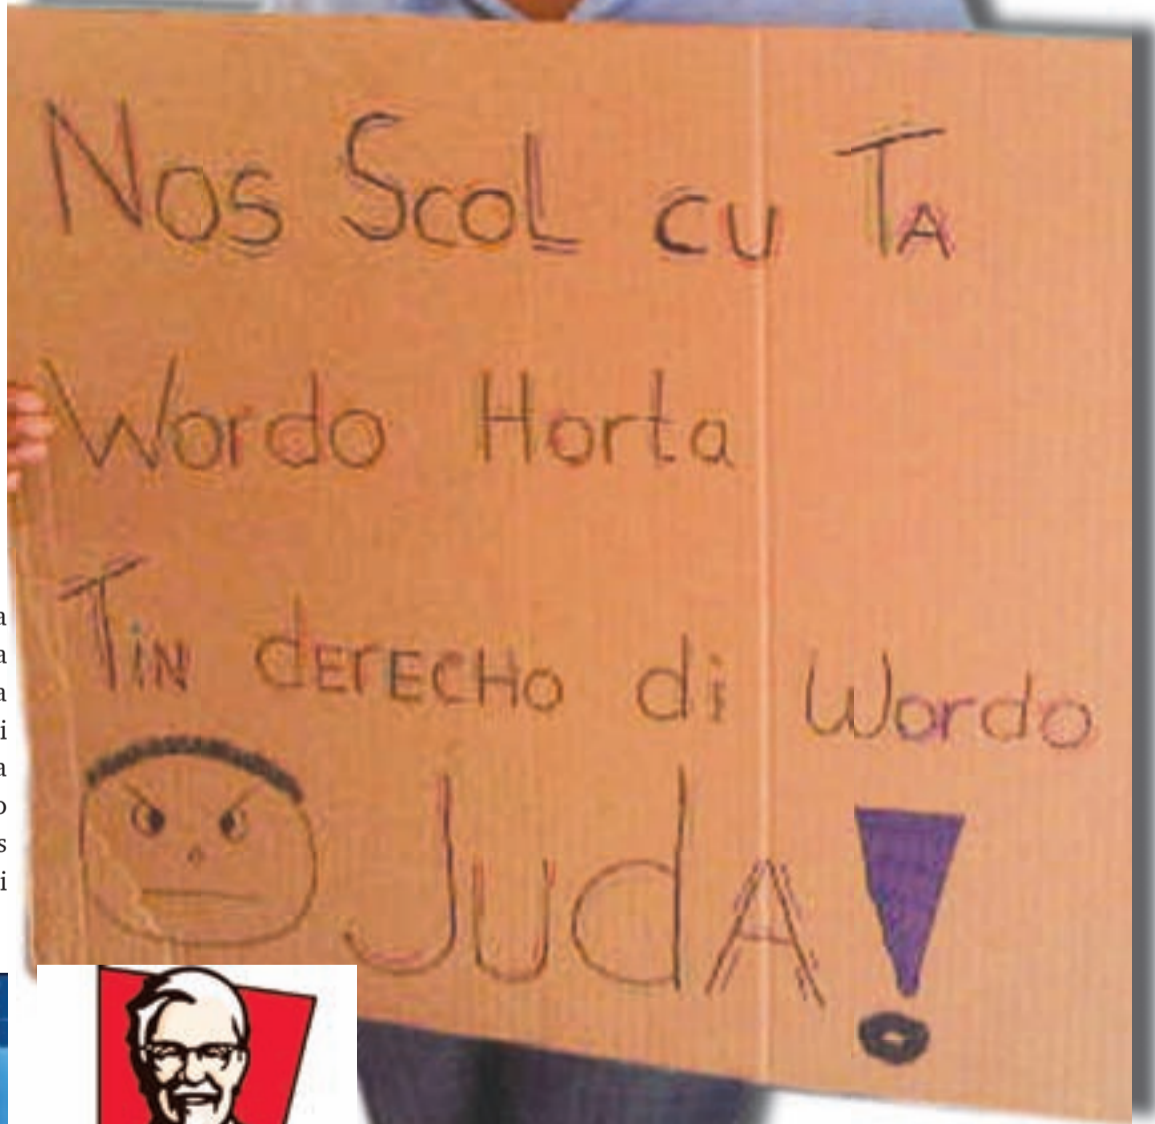 Nos Scol cu TA
Wordo Horta
Tin dErECHo di Wordo
JudA!
a
a
a
i
a
o
s
i